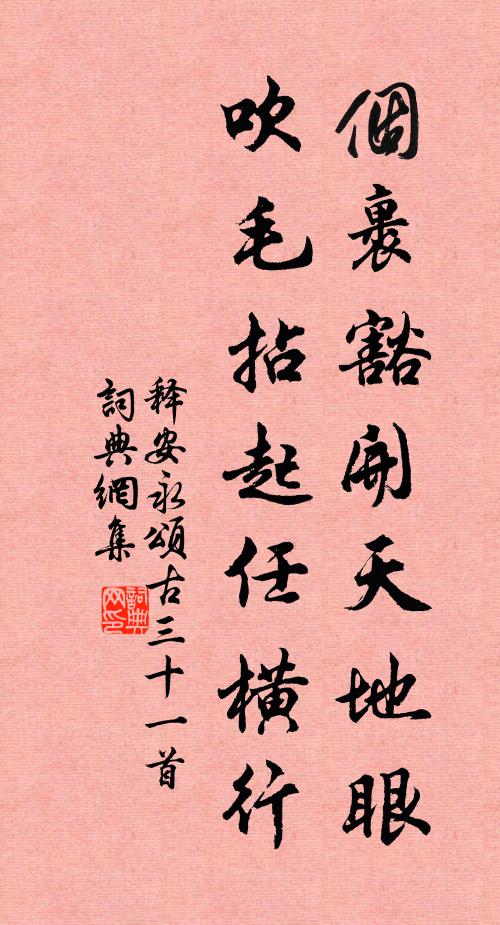 個裏豁開天地眼
吹毛拈起任橫行
释安永頌古三十一首
詞典網集
詞典网印